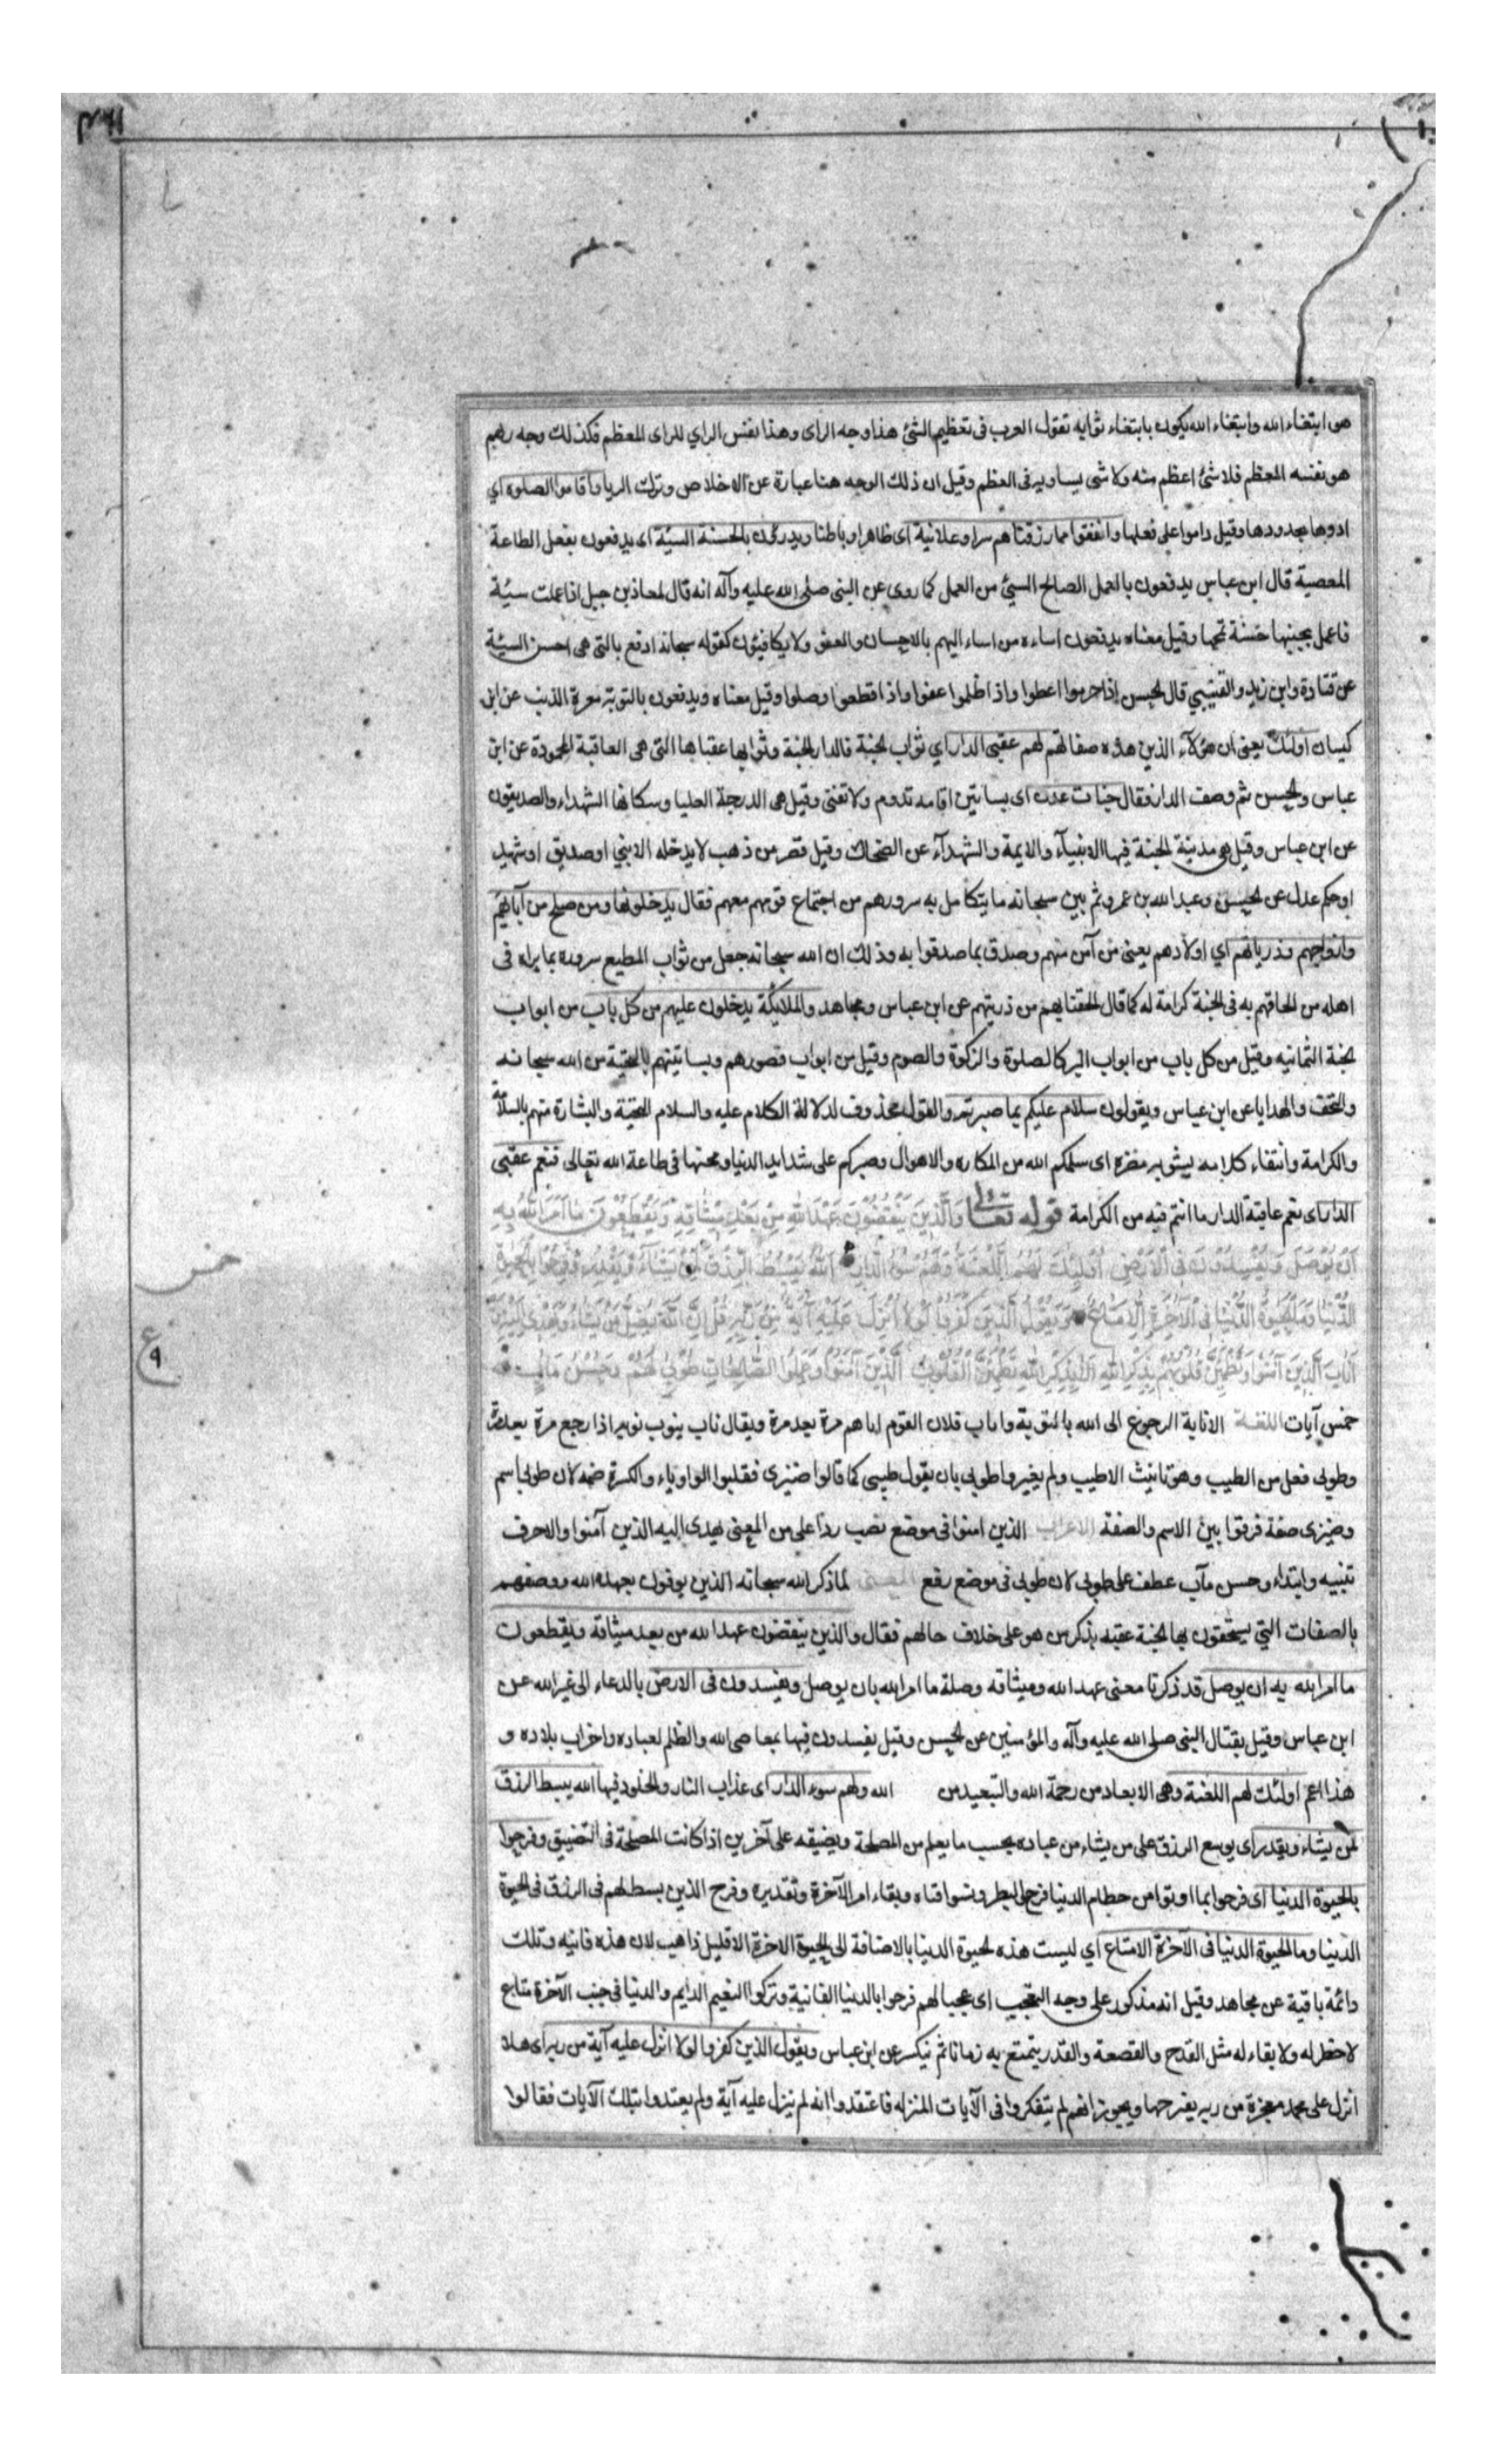 هو ابتغاء الله وابتغاء الله يكون بابتغاء ثوابه تقول العرب فى تعظيم الشئ هذا وجه الراى وهذا نفس الراي للراى المعظم فكذلك وجه ربهم
هو نفسه المعظم فلا شئ اعظم منه ولا شى يساويه فى العظم وقيل ان ذلك الوجه هنا عبارة عن الاخلاص وترك الريا واقاموا الصلوة اي
ادوها بحدودها وقيل داموا على فعلها وانفقوا مما رزقناهم سرا وعلانية اى ظاهرا وباطنا ويدرؤن بالحسنة السيئة اى يدفعون بفعل الطاعة
المعصية قال ابن عباس يدفعون بالعمل الصالح السيئ من العمل كما روى عن النبى صلى الله عليه وآله انه قال لمعاذ بن جبل اذا عملت سيئة
فاعمل بجنبها حسنة تمحها وقيل معناه يدفعون اساءة من اساء اليهم بالاحسان والعفو ولا يكافيئون كقوله سبحانه ادفع بالتى هى احسن السيئة
عن قتادة وابن زيد والقتيبي قال الحسن اذا حرموا اعطوا واذا ظلموا عفوا واذا قطعوا وصلوا وقيل معناه ويدفعون بالتوبة معرة الذنب عن ابن
كيسان اولئك يعنى ان هؤلآء الذين هذه صفاتهم لهم عقبى الدار اي ثواب الجنة فالدار الجنة وثوابها عقباها التى هى العاقبة المحمودة عن ابن
عباس والحسن ثم وصف الدار فقال جنات عدن اى بساتين اقامه تدوم ولا تفنى وقيل هى الدرجة العليا وسكانها الشهداء والصديقون
عن ابن عباس وقيل هو مدينة الجنة فيها الانبيآء والايمة والشهدآء عن الضحاك وقيل قصر من ذهب لا يدخله الا نبي او صديق او شهيد
او حكم عدل عن الحسن وعبد الله بن عمرو ثم بين سبحانه ما يتكامل به سرورهم من اجتماع قومهم معهم فقال يدخلونها ومن صلح من آبائهم
وازواجهم وذرياتهم اي اولادهم يعنى من آمن منهم وصدق بما صدقوا به وذلك ان الله سبحانه جعل من ثواب المطيع سروره بما يراه فى
اهله من الحاقهم به فى الجنة كرامة له كما قال الحقنا بهم من ذريتهم عن ابن عباس ومجاهد والملائكة يدخلون عليهم من كل باب من ابواب
الجنة الثمانيه وقيل من كل باب من ابواب البر كالصلوة والزكوة والصوم وقيل من ابواب قصورهم وبساتينهم بالتحية من الله سبحانه
والتحف والهدايا عن ابن عباس ويقولون سلام عليكم بما صبرتم والقول محذوف لدلالة الكلام عليه والسلام التحية والبشارة منهم بالسلامة
والكرامة وانتفاء كلما به يشوبه مضره اى سلمكم الله من المكاره والاهوال وصبركم على شدايد الدنيا ومحنها فى طاعة الله تعالى فنعم عقبى
الدار اى نعم عاقبة الدار ما انتم فيه من الكرامة قوله تعالى وَالَّذِينَ يَنْقُضُونَ عَهْدَ اللهِ مِنْ بَعْدِ مِيثَاقِهِ وَيَقْطَعُونَ مَا اَمَرَ اللهُ بِهِ
اَنْ يُوصَلَ وَيُفْسِدُونَ فِى الْاَرْضِ اُولَئِكَ لَهُمُ اللَّعْنَةُ وَلَهُمْ سُوءُ الدَّارِ اَللهُ يَبْسُطُ الرِّزْقَ لِمَنْ يَشَآءُ وَيَقْدِرُ وَفَرِحُوا بِالْحَيٰوةِ
الدُّنْيَا وَمَا الْحَيٰوةُ الدُّنْيَا فِى الْآخِرَةِ اِلَّا مَتَاعٌ وَيَقُولُ الَّذِينَ كَفَرُوا لَوْلَا اُنْزِلَ عَلَيْهِ آيَةٌ مِنْ رَبِّهِ قُلْ اِنَّ اللهَ يُضِلُّ مَنْ يَشَاءُ وَيَهْدِى اِلَيْهِ مَنْ
اَنَابَ الَّذِينَ آمَنُوا وَتَطْمَئِنُّ قُلُوبُهُمْ بِذِكْرِ اللهِ اَلَا بِذِكْرِ اللهِ تَطْمَئِنُّ الْقُلُوبُ الَّذِينَ آمَنُوا وَعَمِلُوا الصَّالِحَاتِ طُوبَى لَهُمْ وَحُسْنُ مَآبٍ
خمس
ع
٩
خمس آيات اللغة الانابة الرجوع الى الله بالتوبة وناب فلان القوم اتاهم مرة بعد مرة ويقال ناب ينوب نوبة اذا رجع مرة بعد مرة
وطوبى فعلى من الطيب وهو تانيث الاطيب ولم يغيروا طوبى بان يقول طيبى كما قالوا ضيزى فقلبوا الواو ياء والكسرة ضمه لان طوبى اسم
وضيزى صفة فرقوا بين الاسم والصفة الاعراب الذين امنوا فى موضع نصب ردا على من المعنى يهدى اليه الذين آمنوا والا حرف
تنبيه وابتداء وحسن مآب عطف على طوبى لان طوبى فى موضع رفع المعنى لما ذكر الله سبحانه الذين يوفون بعهد الله ووصفهم
بالصفات التي يستحقون بها الجنة عقبه بذكر من هو على خلاف حالهم فقال والذين ينقضون عهد الله من بعد ميثاقه ويقطعون
ما امر الله به ان يوصل قد ذكرنا معنى عهد الله وميثاقه وصلة ما امر الله بان يوصل ويفسدون فى الارض بالدعاء الى غير الله عن
ابن عباس وقيل بقتال النبى صلى الله عليه وآله والمؤمنين عن الحسن وقيل يفسدون فيها بمعاصى الله والظلم لعباده واخراب بلاده و
هذا اعم اولئك لهم اللعنة وهى الابعاد من رحمة الله والتبعيد من الله ولهم سوء الدار اى عذاب النار والخلود فيها الله يبسط الرزق
لمن يشاء ويقدر اى يوسع الرزق على من يشاء من عباده بحسب ما يعلم من المصلحة ويضيقه على آخرين اذا كانت المصلحة فى التضييق وفرحوا
بالحيوة الدنيا اى فرحوا بما اوتوا من حطام الدنيا فرح البطر ونسوا فناه وبقاء امر الآخرة وتقديره وفرح الذين بسط لهم فى الرزق فى الحيوة
الدنيا وما الحيوة الدنيا فى الآخرة الا متاع اي ليست هذه الحيوة الدنيا بالاضافة الى الحيوة الاخرة الا قليل ذاهب لان هذه فانيه وتلك
دائمة باقية عن مجاهد وقيل انه مذكور على وجه التعجب اى عجبا لهم فرحوا بالدنيا الفانية وتركوا النعيم الدايم والدنيا فى جنب الآخرة متاع
لا خطر له ولا بقاء له مثل القدح والقصعة والقدر يتمتع به زمانا ثم ينكسر عن ابن عباس ويقول الذين كفروا لولا انزل عليه آية من ربه اى هلا
انزل على محمد معجزة من ربه يقترحها ويجوز انهم لم يتفكروا فى الآيات المنزله فاعتقدوا انه لم ينزل عليه آية ولم يعتدوا بتلك الآيات فقالوا